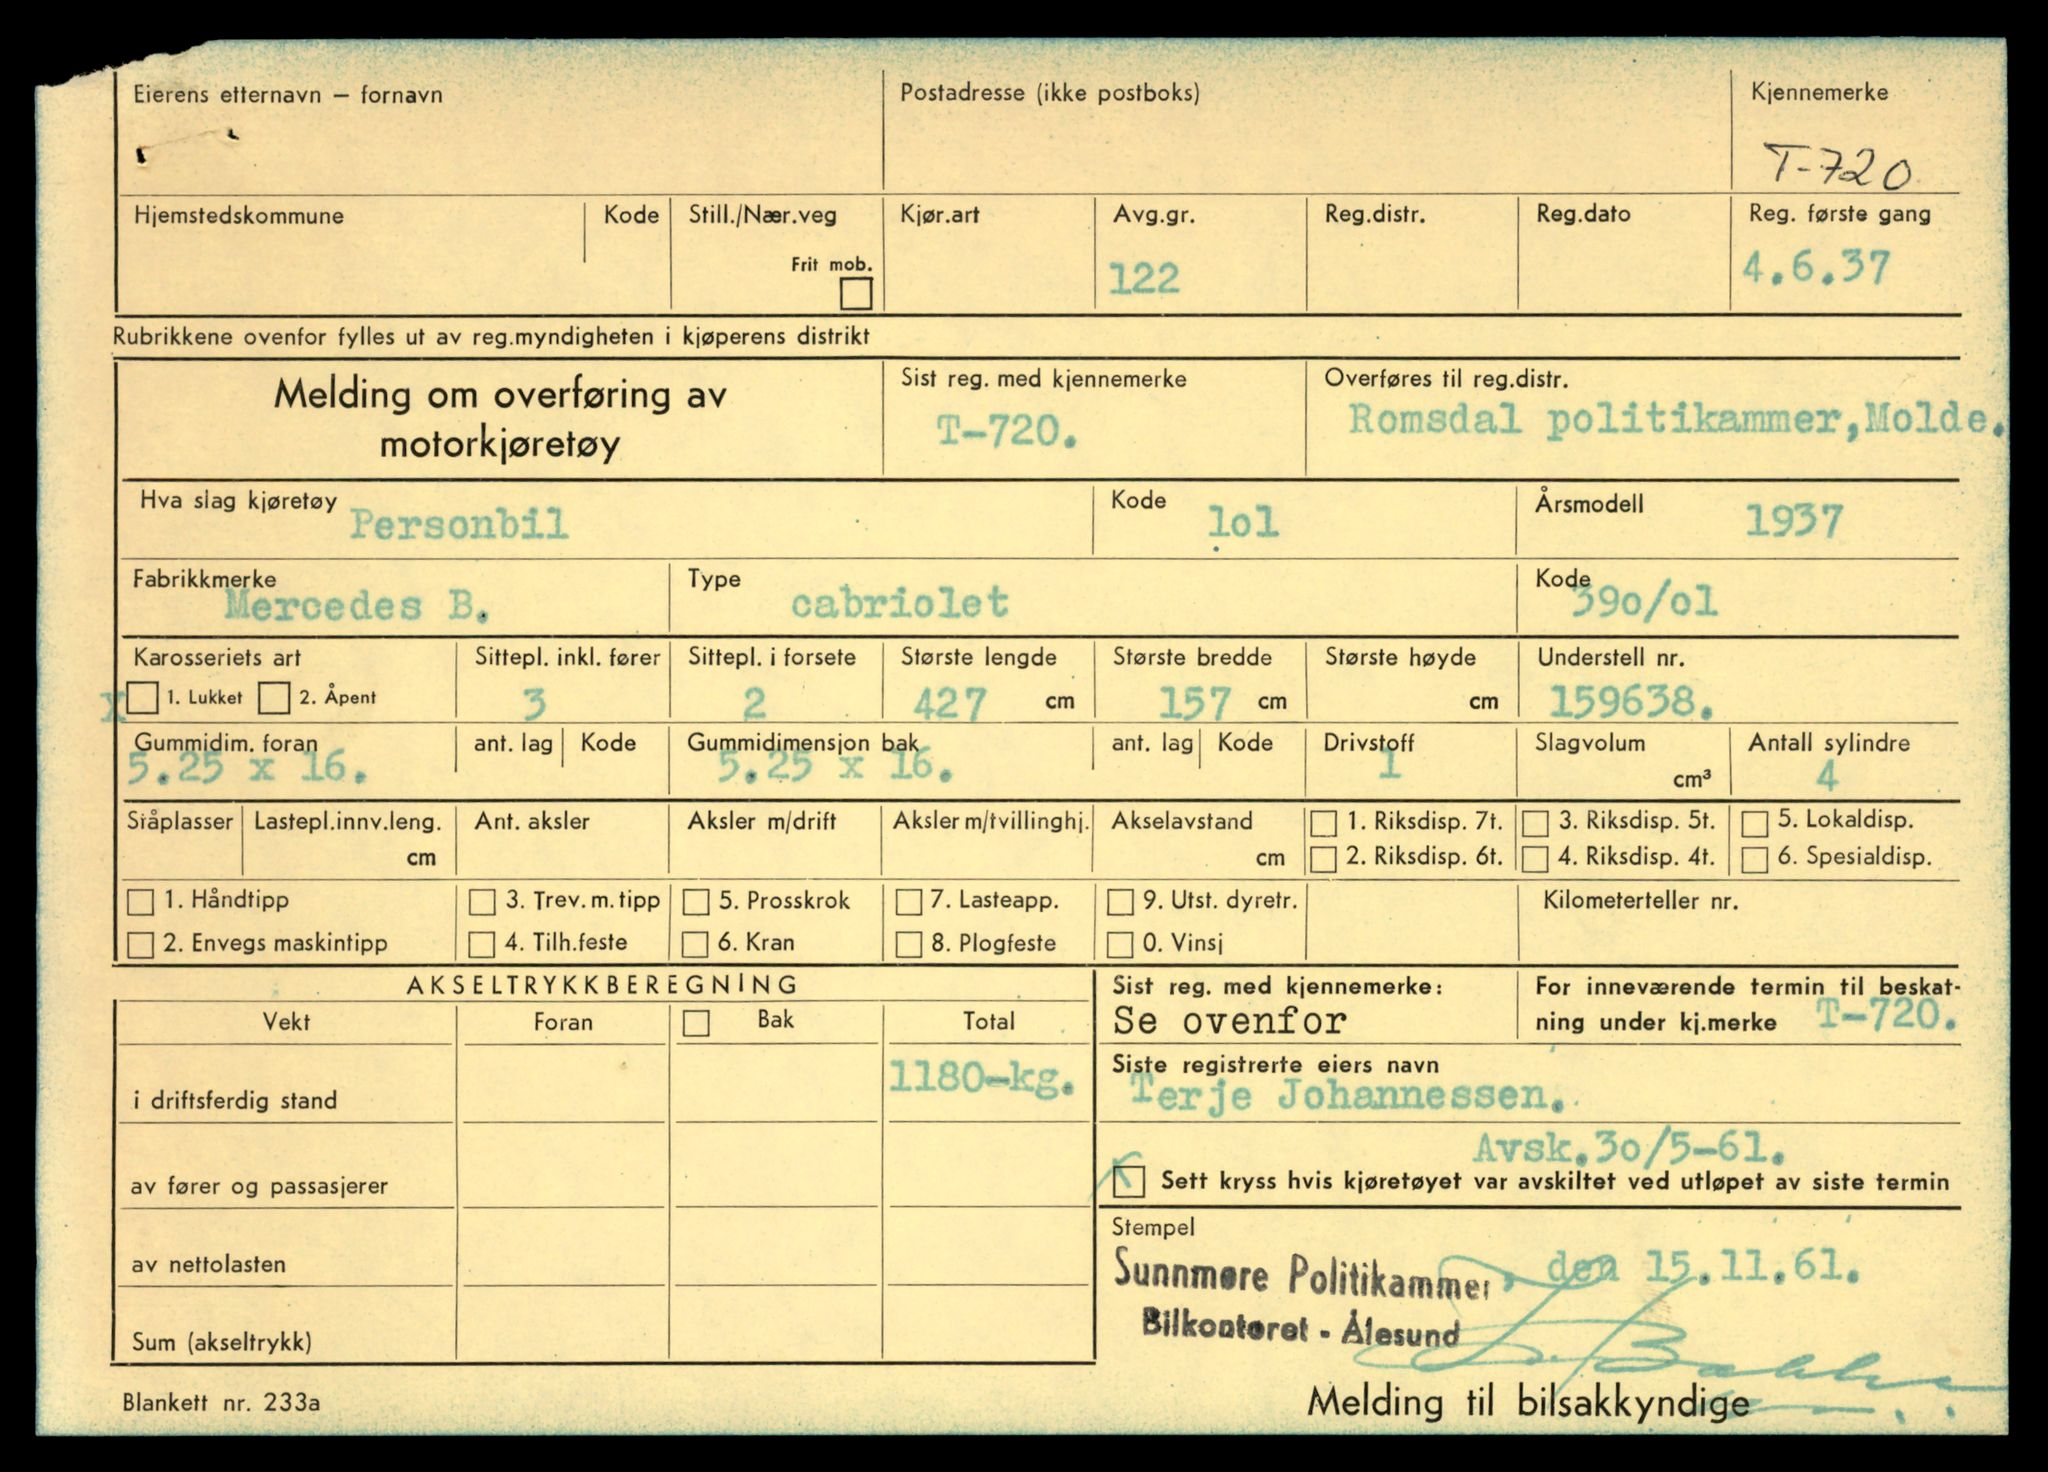 Eierens etternavn – fornavn
Postadresse (ikke postboks)
Kjennemerke
T-720
Hjemstedskommune
Kode
Still./Nær.veg
Frit mob.
Kjør.art
Avg.gr.
122
Reg.distr.
Reg.dato
Reg. første gang
4.6.37
Rubrikkene ovenfor fylles ut av reg.myndigheten i kjøperens distrikt
Melding om overføring av
motorkjøretøy
Sist reg. med kjennemerke
T-720.
Overføres til reg.distr.
Romsdal politikammer,Molde.
Hva slag kjøretøy
Personbil
Kode
lol
Årsmodell
1937
Fabrikkmerke
Mercedes B.
Type
cabriolet
Kode
39o/ol
Karosseriets art
x 1. Lukket 2. Åpent
Sittepl. inkl. fører
3
Sittepl. i forsete
2
Største lengde
427 cm
Største bredde
157 cm
Største høyde
cm
Understell nr.
159638.
Gummidim. foran
5.25 x 16.
ant. lag Kode
Gummidimensjon bak
5.25 x 16.
ant. lag Kode
Drivstoff
1
Slagvolum
cm³
Antall sylindre
4
Ståplasser
Lastepl.innv.leng.
cm
Ant. aksler
Aksler m/drift
Aksler m/tvillinghj.
Akselavstand
cm
1. Riksdisp. 7t.
2. Riksdisp. 6t.
3. Riksdisp. 5t.
4. Riksdisp. 4t.
5. Lokaldisp.
6. Spesialdisp.
1. Håndtipp
2. Envegs maskintipp
3. Trev. m. tipp
4. Tilh.feste
5. Prosskrok
6. Kran
7. Lasteapp.
8. Plogfeste
9. Utst. dyretr.
0. Vinsj
Kilometerteller nr.
AKSELTRYKKBEREGNING
Vekt
Foran
Bak
Total
i driftsferdig stand
1180-kg.
av fører og passasjerer
av nettolasten
Sum (akseltrykk)
Sist reg. med kjennemerke:
Se ovenfor
For inneværende termin til beskat-
ning under kj.merke T-720.
Siste registrerte eiers navn
Terje Johannessen.
Avsk.3o/5-61.
x Sett kryss hvis kjøretøyet var avskiltet ved utløpet av siste termin
Stempel
Sunnmøre Politikammer
den 15.11.61.
Bilkontoret - Ålesund
Blankett nr. 233a
Melding til bilsakkyndige